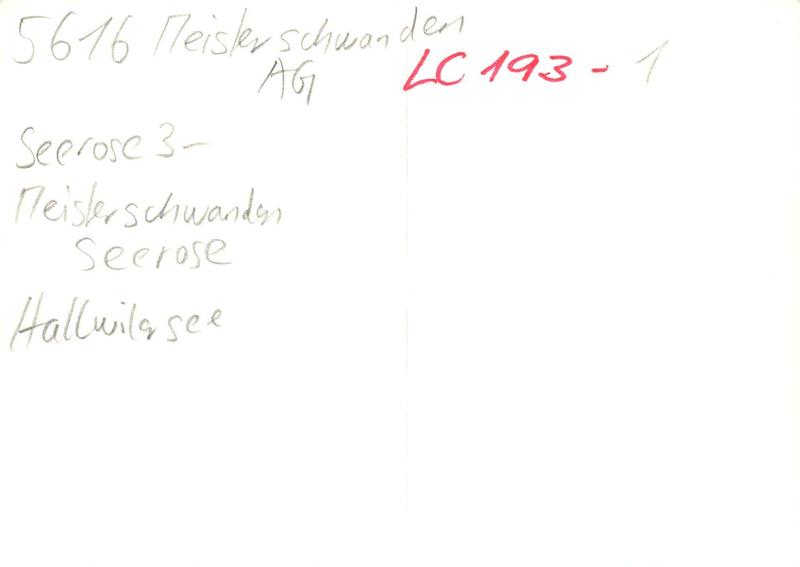 5616 Meisterschwanden
AG
LC 193 - 1
Seerose 3-
Meisterschwanden
Seerose
Hallwilersee